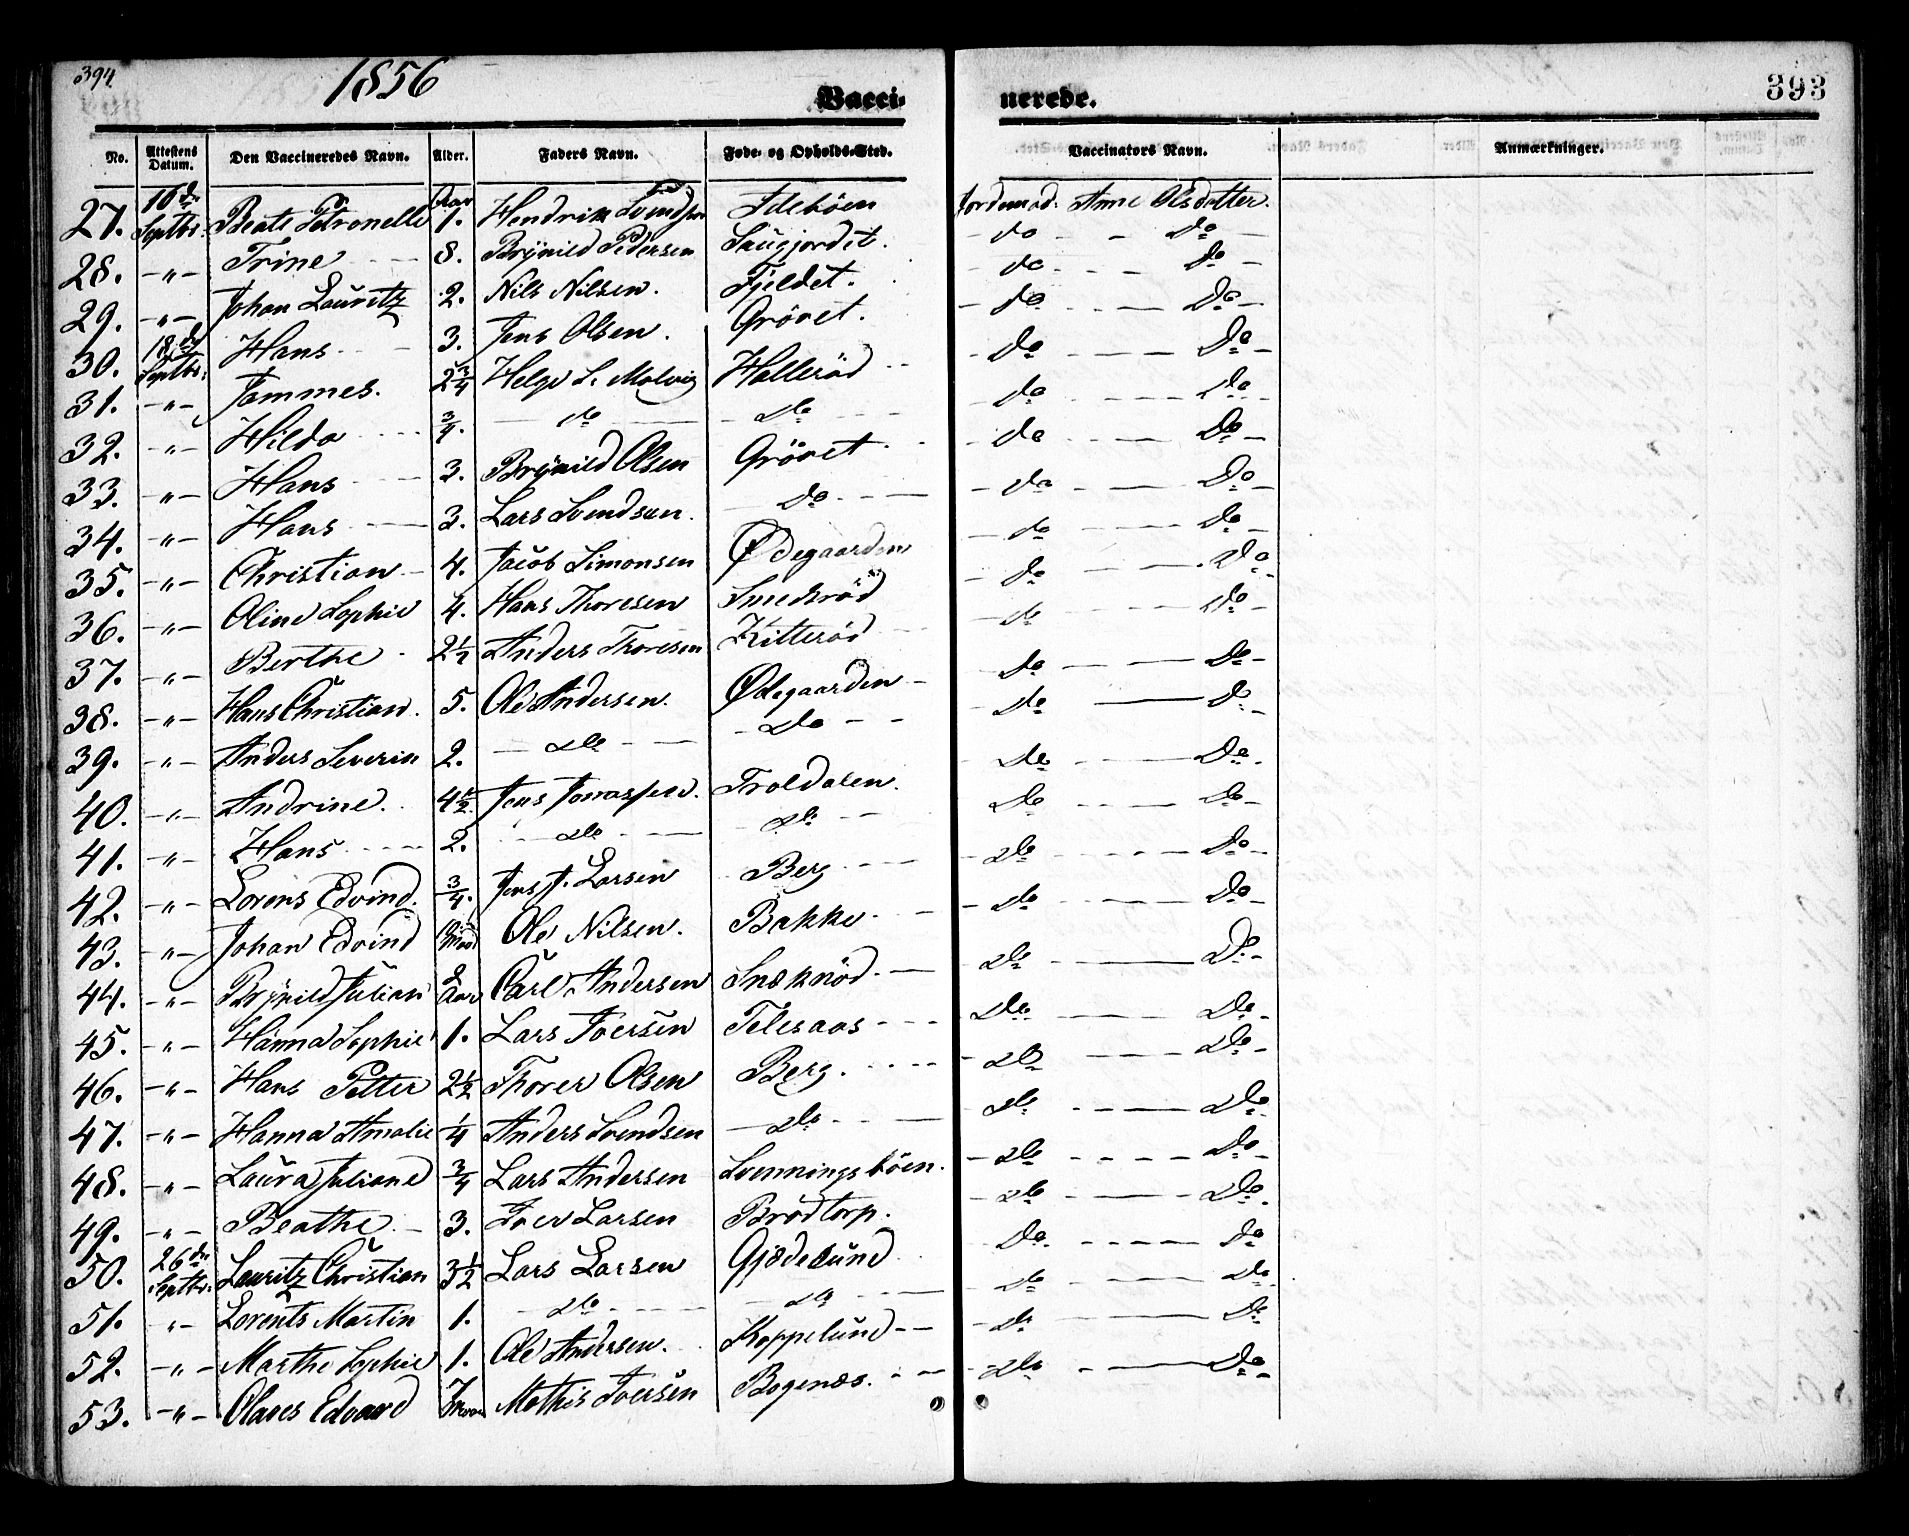 394. 1856
Vacci- nerede. 393
No. Attestens Datum. Den Vaccineredes Navn. Alder. Faders Navn. Føde- og Opholds-Sted. Vaccinators Navn. Anmærkninger.
27. 16de Septbr. Beate Petronelle Aar 1. Hendrik Svendsen Idebøen Jordemod. Anne Olsdatter.
28. -"- Trine 8. Brÿnild Pedersen Saugjordet. - do - - Do -
29. -"- Johan Lauritz 2. Nils Nilsen. Fjeldet. - do - - - Do -
30. 18de Septbr. Hans 3. Jens Olsen. Grövet. - do - - - Do -
31. -"- Jammes. 2¾ Helge S. Molvig Hallerød - do - - - Do -
32. -"- Hilda ¾. - do - - do - - do - - - Do -
33. -"- Hans 3. Brÿnild Olsen Grövet - do - - - Do -
34. -"- Hans 3. Lars Svendsen. - do - - - do - - Do -
35. -"- Christian 4. Jacob Simonsen Ødegaarden - do - - - Do -
36. -"- Oline Sophie 4. Hans Thoresen Smedsrød - do - - - Do -
37. -"- Berthe 2½ Anders Thoresen Kitterød - do - - - Do -
38. -"- Hans Christian. 5. Ole Andersen. Ødegaarden - - do - - Do -
39. -"- Anders Severin 2. - do - - - do - - - do - - Do -
40. -"- Andrine. 4½ Jens Jonassen. Troldalen. - do - - Do -
41. -"- Hans 2. - do - - - do - - - do - - Do -
42. -"- Lorens Edvind. ¾. Jens J. Larsen Berg - - - do - - - Do -
43. -"- Johan Edvind Ole Nilsen. Bakke - - - do - - - Do -
44. -"- Brÿnild Julian Aar Carl Andersen Snekkød - - - do - - Do -
45. -"- Hanna Sophie 1. Lars Iversen Telesaas - - - do - - Do -
46. -"- Hans Petter 2½ Thorer Olsen Berg. - - - - do - - Do -
47. -"- Hanna Amalie ¼ Anders Svendsen - do - - - do - - - Do -
48. -"- Laura Juliane ¾ Lars Andersen Svenningsbøen. - do - - - Do -
49. -"- Beathe 3. Iver Larsen Brødtorp. - do - - - Do -
50. 26de Septbr. Lauritz Christian 3½ Lars Larsen Gjødesund Do - - - Do
51. -"- Lorents Martin 1. - do - - - do - - - do - - Do
52. -"- Marthe Sophie 1. Ole Andersen. Koppelund - - - do - - Do
53. -"- Olaves Edvard Mathis Iversen Bogenæs. - - - do - - Do -